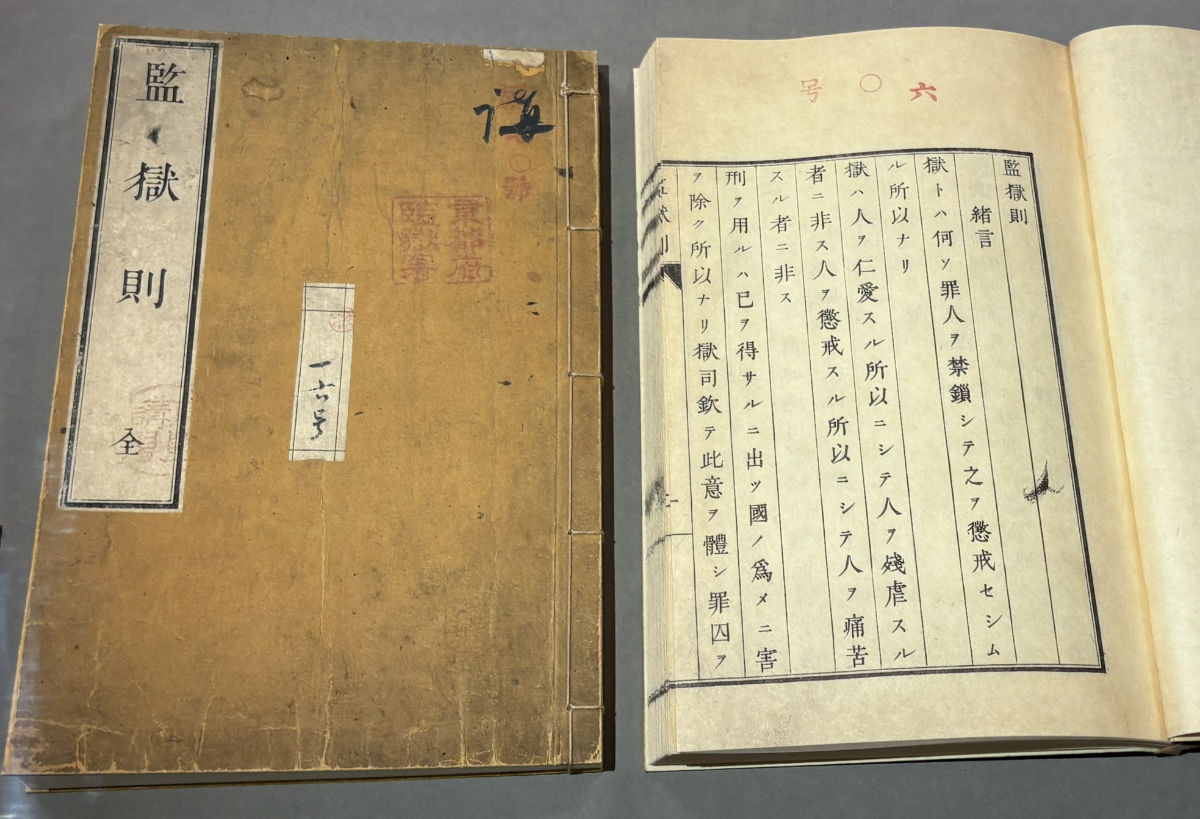 監獄則
全
京都府
監獄署
一六号
六〇号
監獄則
緒言
獄トハ何ソ罪人ヲ禁鎖シテ之ヲ懲戒セシム
ル所以ナリ
獄ハ人ヲ仁愛スル所以ニシテ人ヲ殘虐スル
者ニ非ス人ヲ懲戒スル所以ニシテ人ヲ痛苦
スル者ニ非ス
刑ヲ用ルハ已ヲ得サルニ出ツ國ノ爲メニ害
ヲ除ク所以ナリ獄司欽テ此意ヲ體シ罪囚ヲ